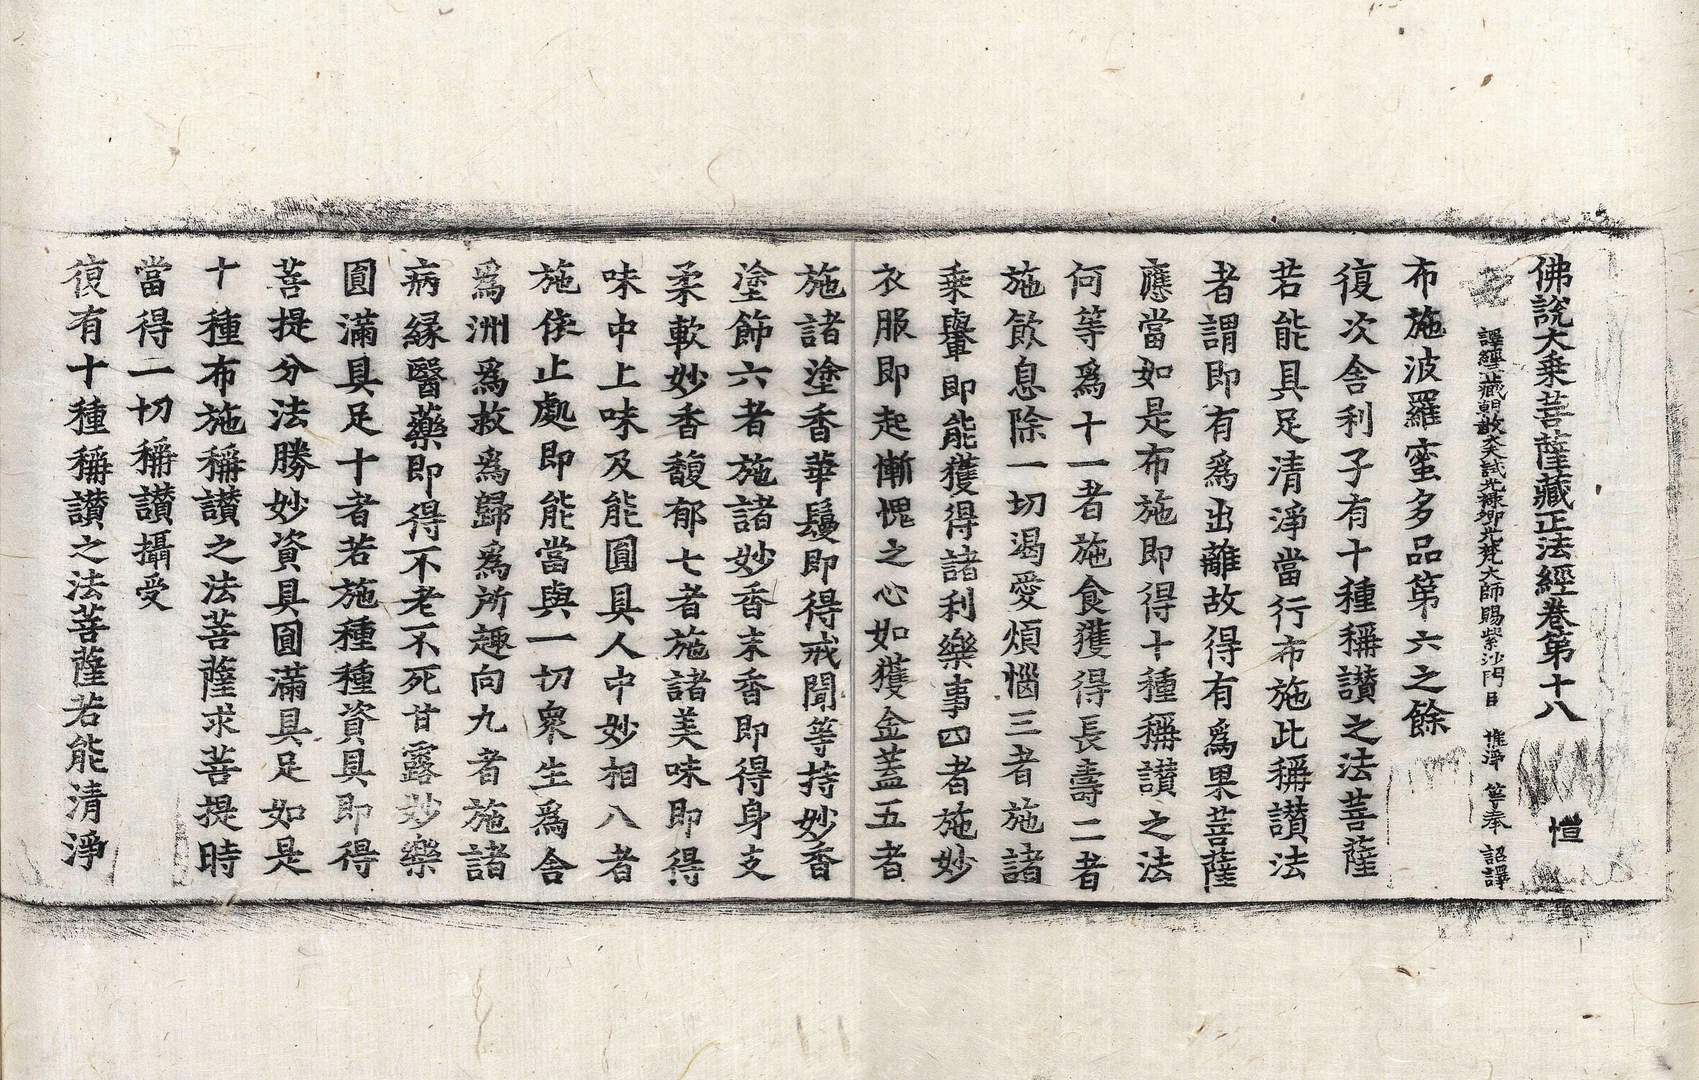 佛說大乗菩薩藏正法經卷第十八 愷
譯經三藏朝散大夫試光祿卿光梵大師賜紫沙門臣 惟淨 等奉 詔譯
布施波羅蜜多品第六之餘
復次舎利子有十種稱讃之法菩薩
若能具足清淨當行布施此稱讃法
者謂即有爲出離故得有爲果菩薩
應當如是布施即得十種稱讃之法
何等爲十一者施食獲得長壽二者
施飮息除一切渴愛煩惱三者施諸
乗轝即能獲得諸利樂事四者施妙
衣服即起慚愧之心如獲金蓋五者
施諸塗香華鬘即得戒聞等持妙香
塗飾六者施諸妙香末香即得身支
柔軟妙香馥郁七者施諸美味即得
味中上味及能圓具人中妙相八者
施依止處即能當與一切衆生爲舎
爲洲爲救爲歸爲所趣向九者施諸
病縁醫藥即得不老不死甘露妙樂
圓滿具足十者若施種種資具即得
菩提分法勝妙資具圓滿具足如是
十種布施稱讃之法菩薩求菩提時
當得二切稱讃攝受
復有十種稱讃之法菩薩若能清淨